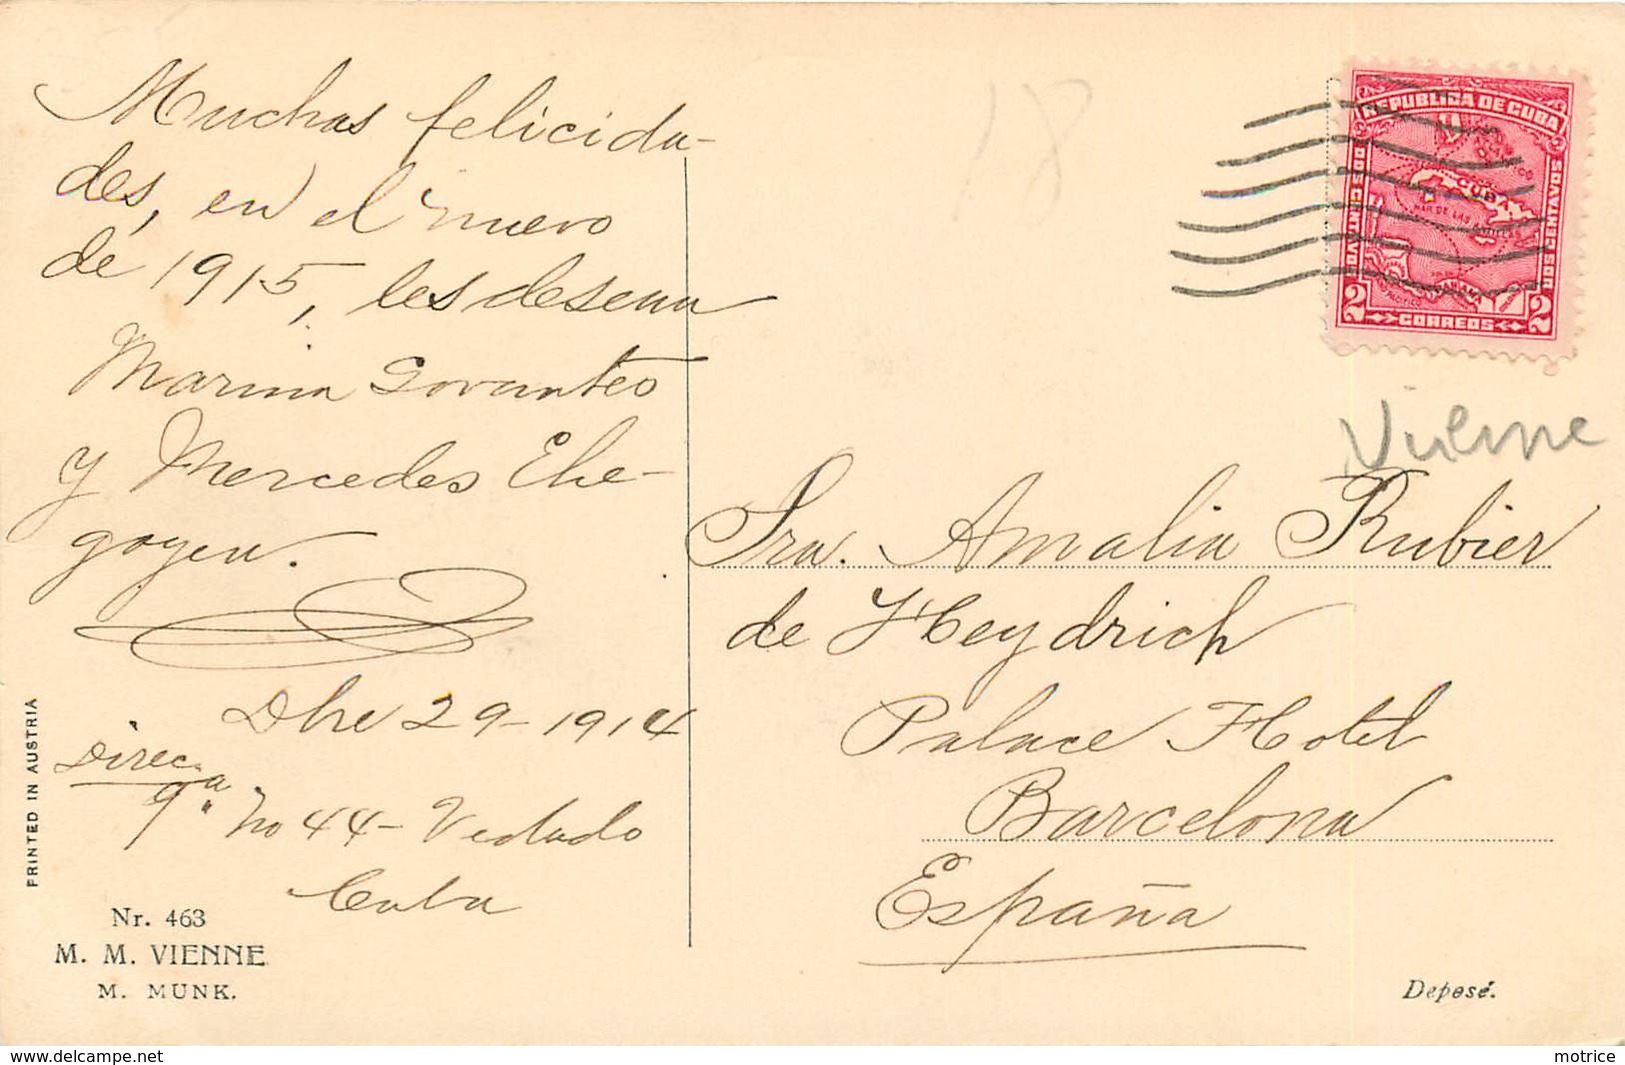 Muchas felicida-
des, en el nuevo
de 1915, les desean
Marina Govantes
y Mercedes Eche-
goyen.
Dbre 29-1914
Direc.
9ª no 44- Vedado
Cuba
PRINTED IN AUSTRIA
Nr. 463
M. M. VIENNE
M. MUNK.
18
REPUBLICA DE CUBA
DOS CENTAVOS
2 CORREOS 2
CUBA
MAR DE LAS ANTILLAS
Vienne
Sra. Amalia Rubier
de Heydrich
Palace Hotel
Barcelona
España
Deposé.
www.delcampe.net
motrice